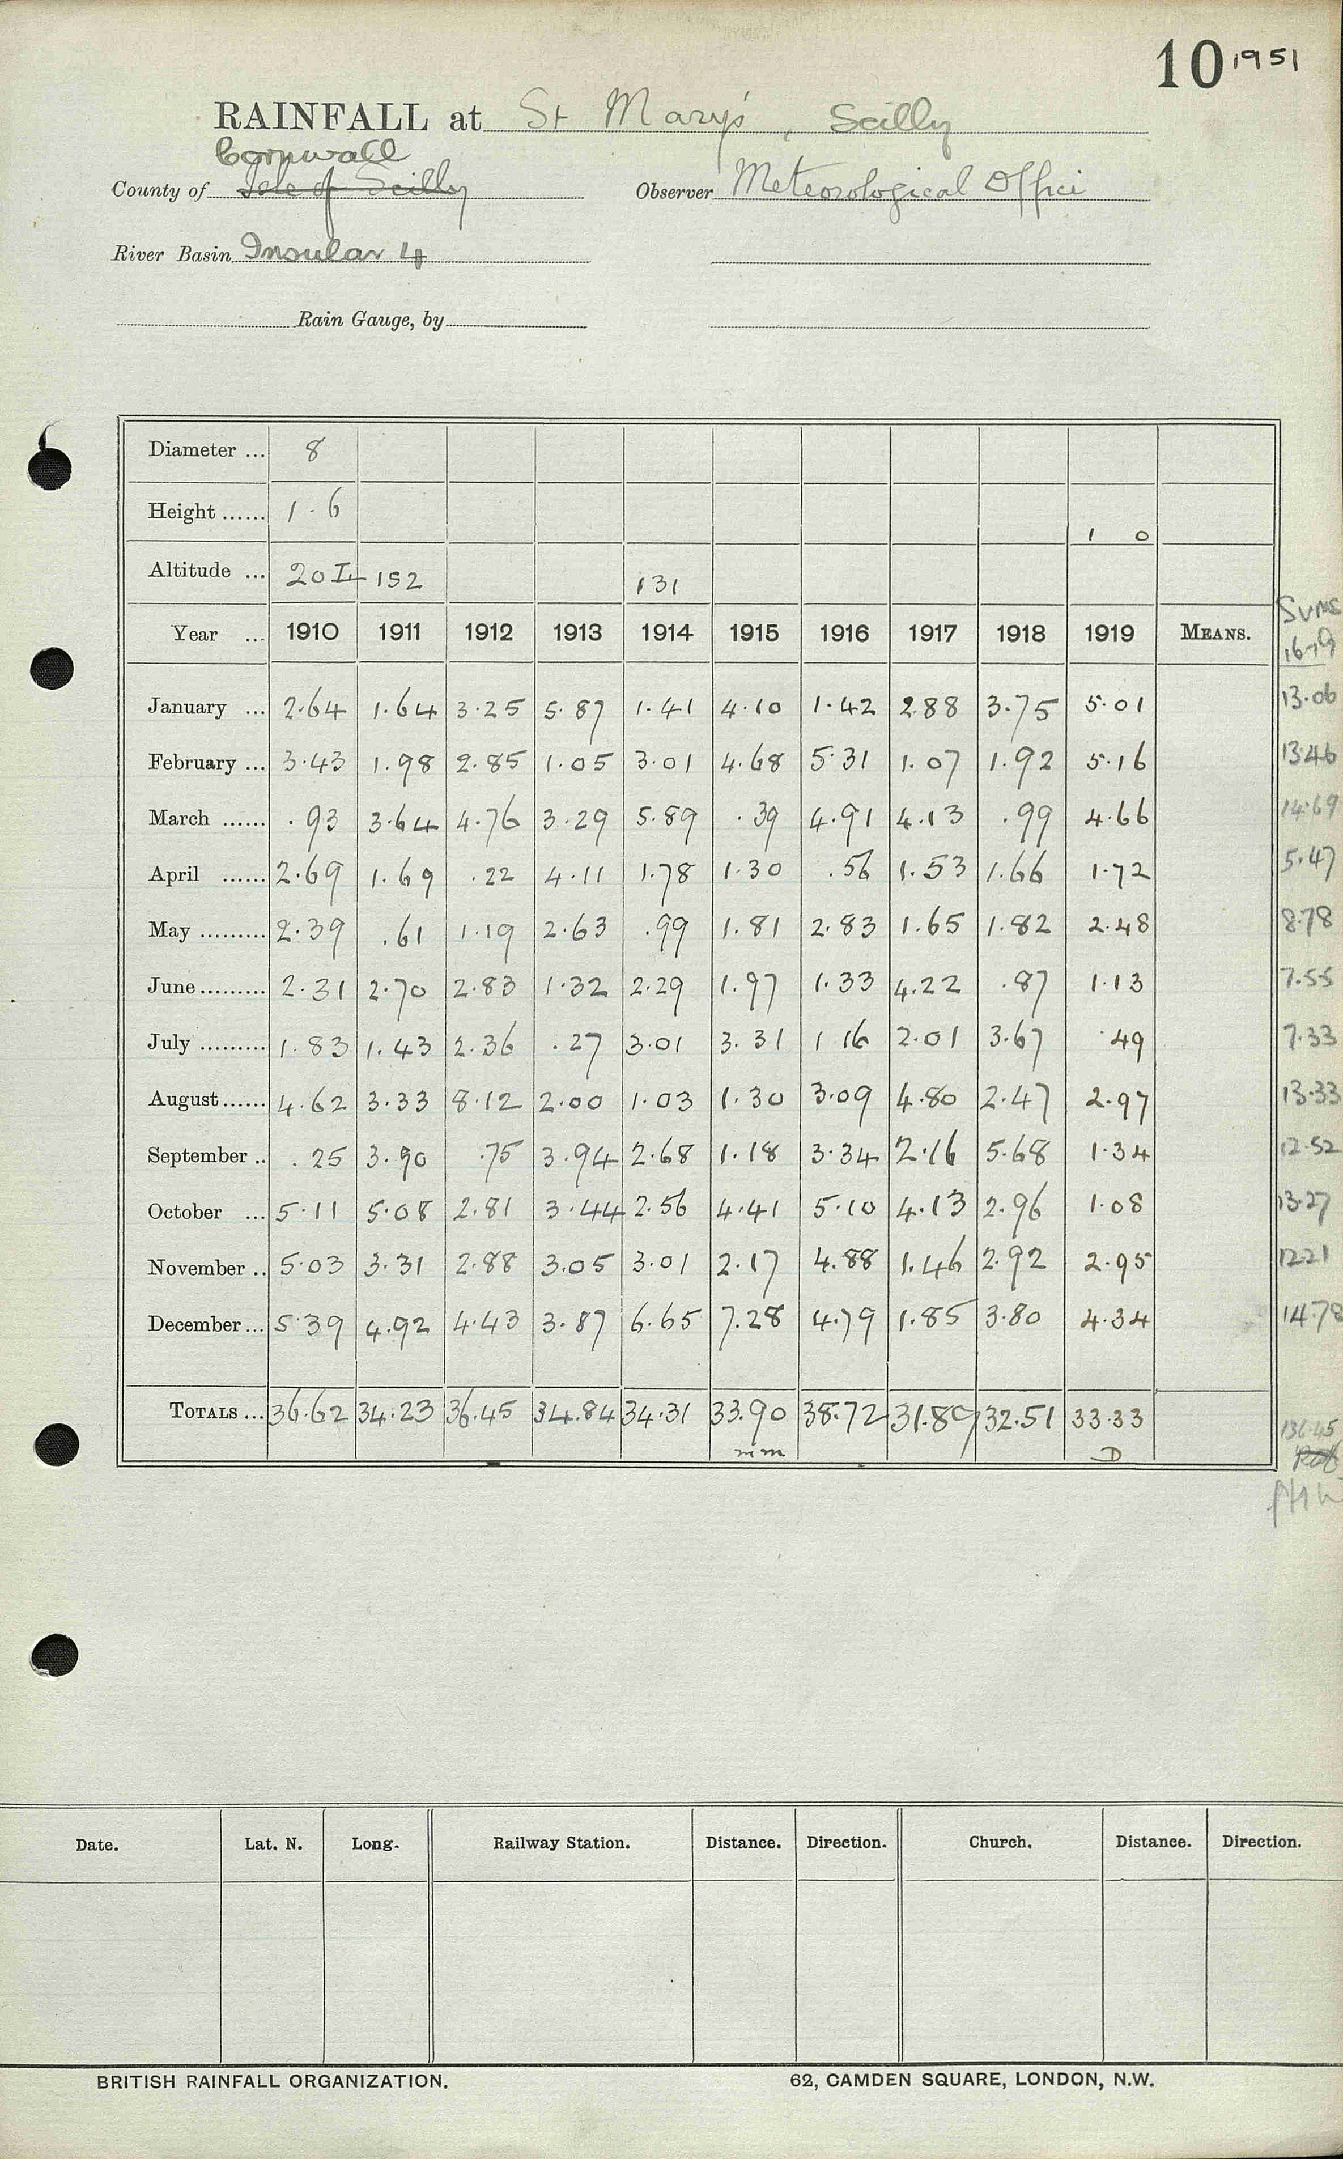 10 1951
RAINFALL at St Mary's, Scilly
Cornwall
County of Isle of Scilly Observer Meteorological Office
River Basin Insular 4
Rain Gauge, by
Diameter ... 8
Height ...... 1.6 1 0
Altitude ... 20 152 131
Year ... 1910 1911 1912 1913 1914 1915 1916 1917 1918 1919 MEANS. Sums 16-19
January ... 2.64 1.64 3.25 5.87 1.41 4.10 1.42 2.88 3.75 5.01 13.06
February ... 3.43 1.98 2.85 1.05 3.01 4.68 5.31 1.07 1.92 5.16 13.46
March ...... .93 3.64 4.76 3.29 5.89 .39 4.91 4.13 .99 4.66 14.69
April ...... 2.69 1.69 .22 4.11 1.78 1.30 .56 1.53 1.66 1.72 5.47
May ......... 2.39 .61 1.19 2.63 .99 1.81 2.83 1.65 1.82 2.48 8.78
June ......... 2.31 2.70 2.83 1.32 2.29 1.97 1.33 4.22 .87 1.13 7.55
July ......... 1.83 1.43 2.36 .27 3.01 3.31 1.16 2.01 3.67 .49 7.33
August ...... 4.62 3.33 8.12 2.00 1.03 1.30 3.09 4.80 2.47 2.97 13.33
September .. .25 3.90 .75 3.94 2.68 1.18 3.34 2.16 5.68 1.34 12.52
October ... 5.11 5.08 2.81 3.44 2.56 4.41 5.10 4.13 2.96 1.08 13.27
November .. 5.03 3.31 2.88 3.05 3.01 2.17 4.88 1.46 2.92 2.95 12.21
December ... 5.39 4.92 4.43 3.87 6.65 7.28 4.79 1.85 3.80 4.34 14.78
TOTALS ... 36.62 34.23 36.45 34.84 34.31 33.90 38.72 31.89 32.51 33.33 136.45
mm D
Date. Lat. N. Long. Railway Station. Distance. Direction. Church. Distance. Direction.
BRITISH RAINFALL ORGANIZATION. 62, CAMDEN SQUARE, LONDON, N.W.